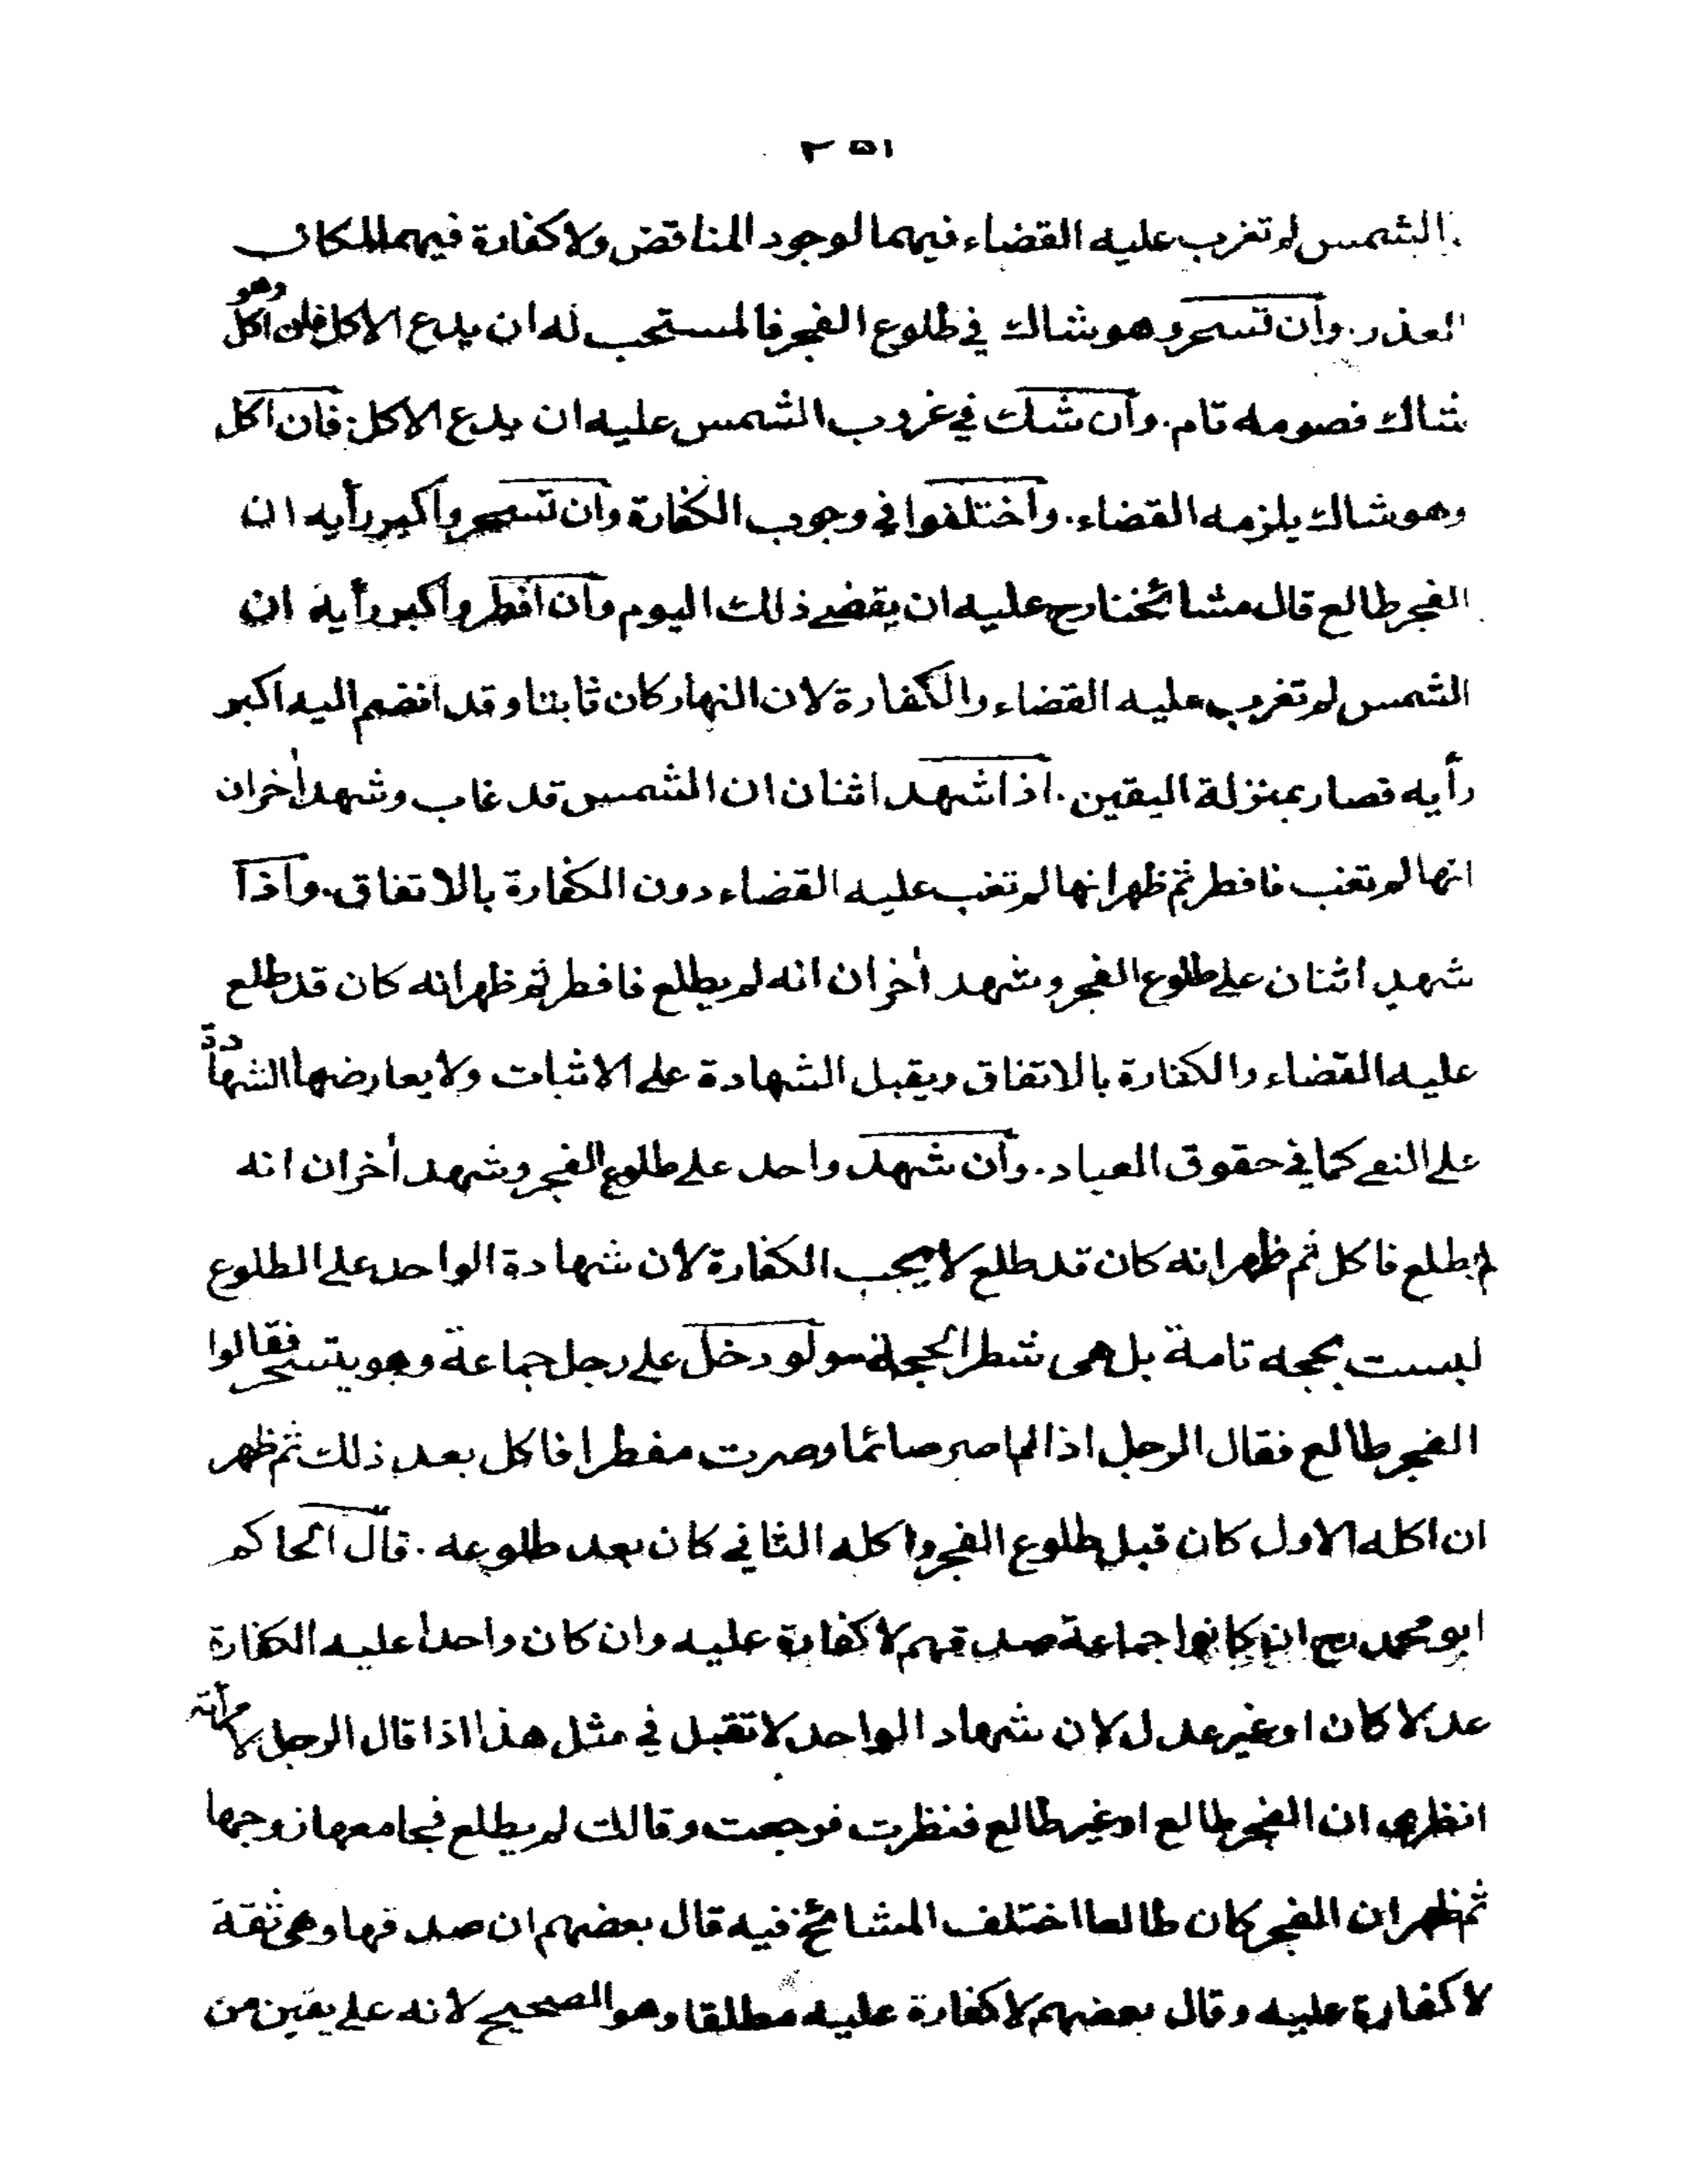 ٢٥١
الشمس لم تغرب عليه القضاء فيهما لوجود المناقض ولا كفارة فيهما لمكان
العذر. وان تسحر وهو شاك في طلوع الفجر فالمستحب له ان يدع الاكل فان اكل وهو
شاك فصومه تام. وان شك في غروب الشمس عليه ان يدع الاكل. فان اكل
وهو شاك يلزمه القضاء. واختلفوا في وجوب الكفارة وان تسحر وأكبر رأيه ان
الفجر طالع قال مشائخنا رح عليه ان يقضے ذلك اليوم وان افطر وأكبر رأيه ان
الشمس لم تغرب عليه القضاء والكفارة لان النهار كان ثابتا وقد انضم اليه اكبر
رأيه فصار بمنزلة اليقين. اذا شهد اثنان ان الشمس قد غاب وشهد اٰخران
انها لم تغب فافطر ثم ظهر انها لم تغب عليه القضاء دون الكفارة بالاتفاق. واذا
شهد اثنان علے طلوع الفجر وشهد اٰخران انه لم يطلع فافطر ثم ظهر انه كان قد طلع
عليه القضاء والكفارة بالاتفاق ويقبل الشهادة علے الاثبات ولا يعارضها الشهادة
علے النفے كما في حقوق العباد. وان شهد واحد علے طلوع الفجر وشهد اٰخران انه
لم يطلع فاكل ثم ظهر انه كان قد طلع لا يجب الكفارة لان شهادة الواحد علے الطلوع
ليست بحجه تامة بل هى شطر الحجة ولو دخل علے رجل جماعة وهو يتسحر فقالوا
الفجر طالع فقال الرجل اذا لم اصر صائما وصرت مفطرا فاكل بعد ذلك ثم ظهر
ان اكله الاول كان قبل طلوع الفجر واكله الثاني كان بعد طلوعه. قال الحاكم
ابو محمد رح ان كانوا جماعة صدقهم لا كفارة عليه وان كان واحدا عليه الكفارة
عدلا كان او غير عدل لان شهاد الواحد لا تقبل في مثل هذا اذا قال الرجل لامرأته
انظرى ان الفجر طالع او غير طالع فنظرت فرجعت وقالت لم يطلع فجامعها زوجها
ثم ظهر ان الفجر كان طالعا اختلف المشائخ فيه قال بعضهم ان صدقها وهى ثقة
لا كفارة عليه وقال بعضهم لا كفارة عليه مطلقا وهو الصحيح لانه علے يقين من